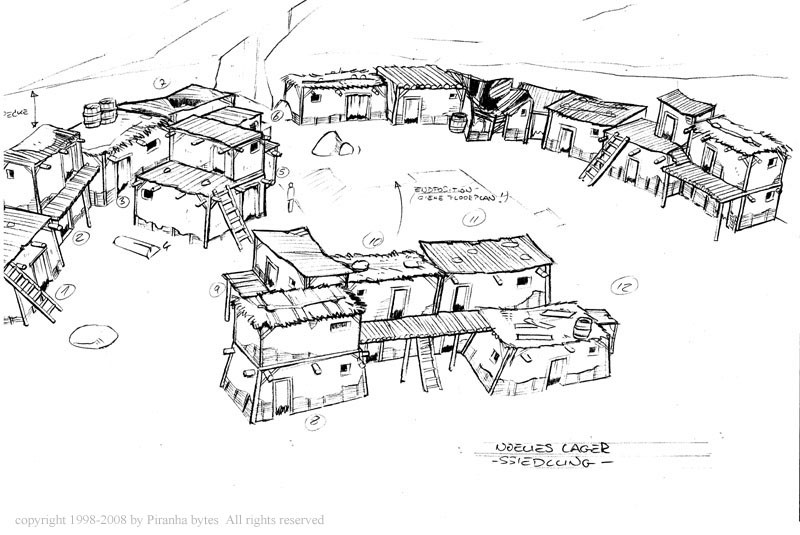 7
6
5
ENDPOSITION -
SIEHE FLOORPLAN !!
3
11
2
4
10
12
1
9
8
NOELIES LAGER
-SSIEDLUNG-
copyright 1998-2008 by Piranha bytes All rights reserved